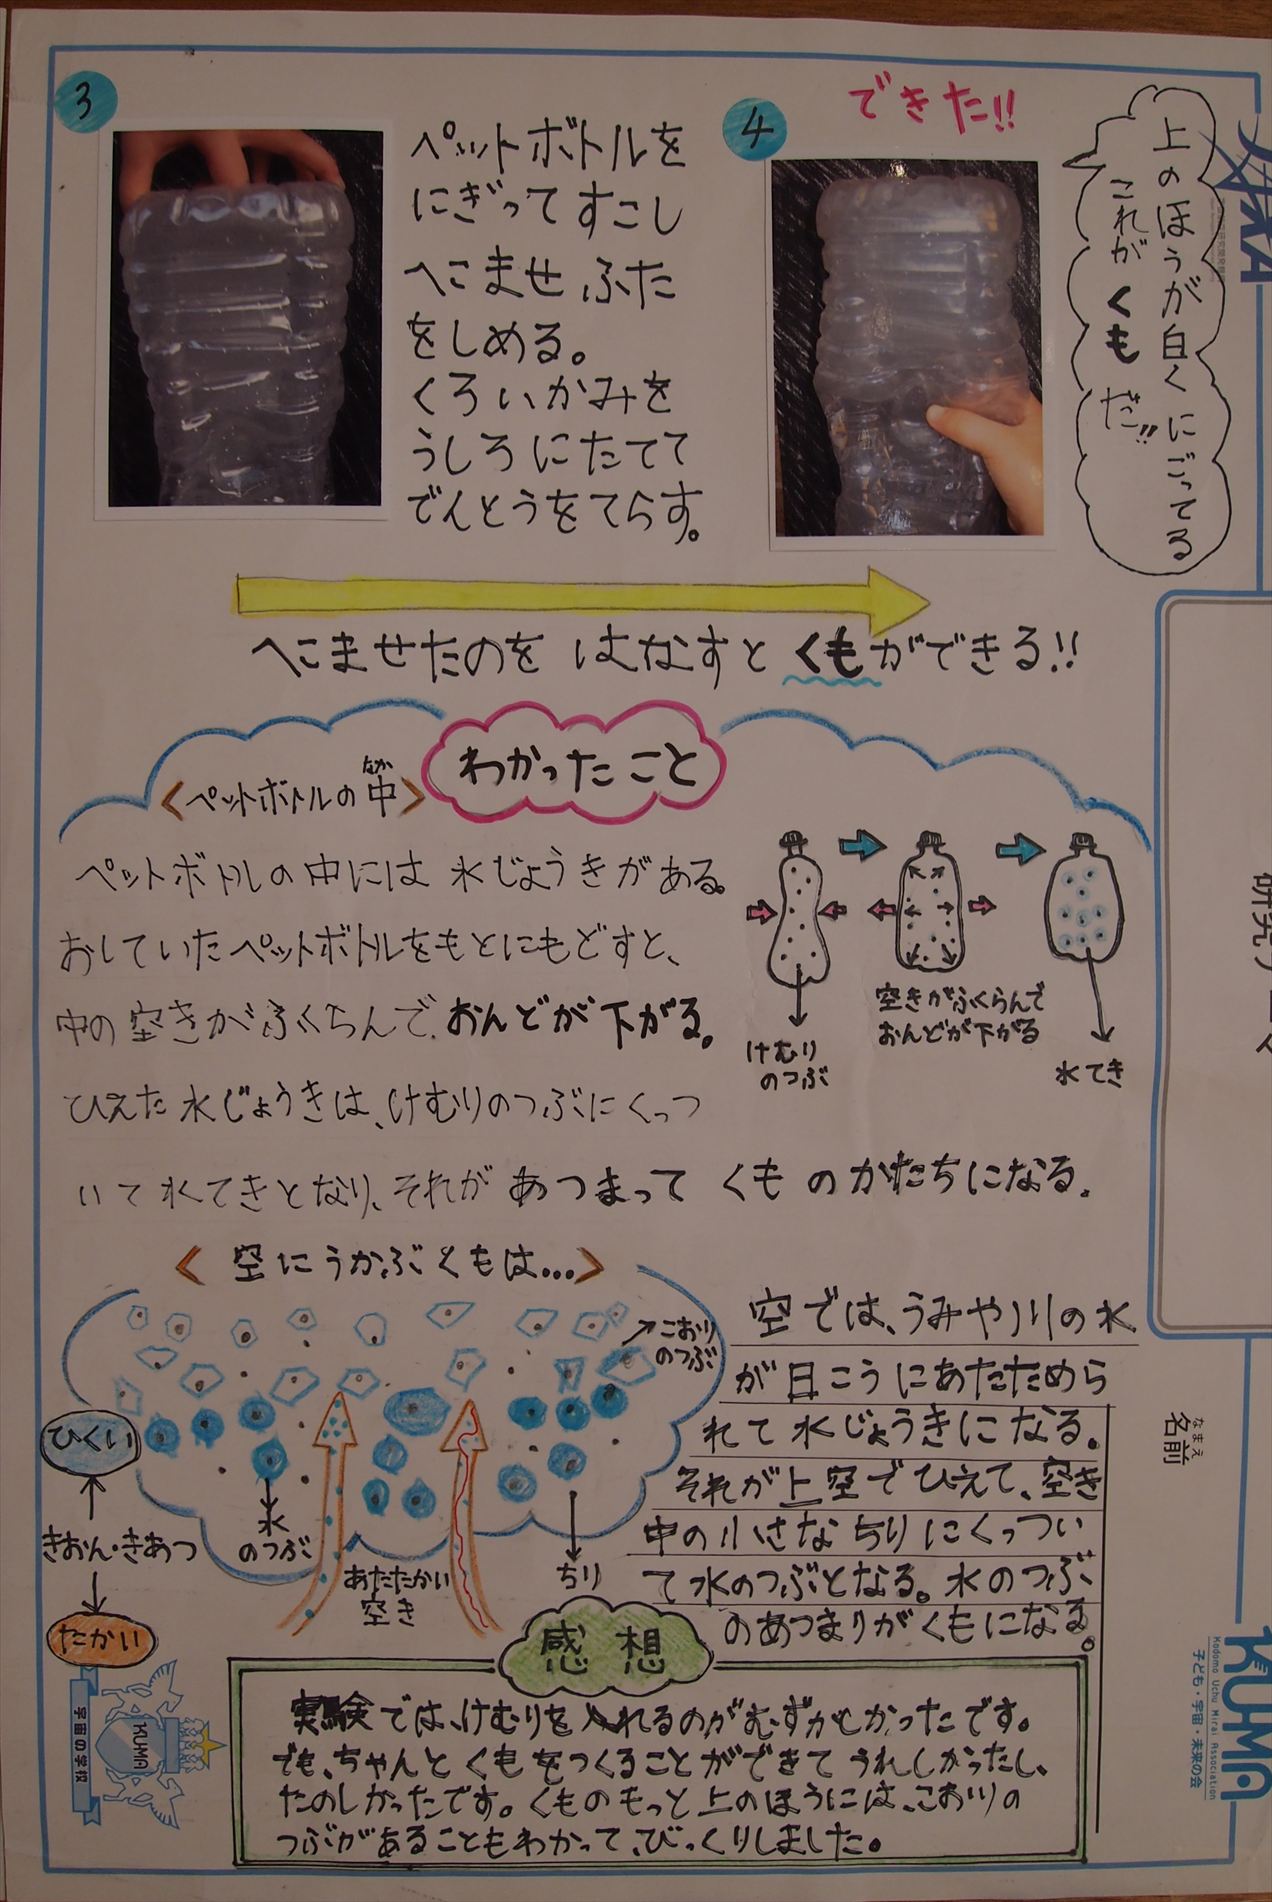 3
ペットボトルを
にぎってすこし
へこませ ふた
をしめる。
くろいかみを
うしろにたてて
でんとうをてらす。
4
できた!!
上のほうが白くにごってる
これがくもだ!!
へこませたのを はなすと くもができる!!
わかったこと
なか
〈ペットボトルの中〉
ペットボトルの中には 水じょうきがある。
おしていたペットボトルをもとにもどすと、
中の空きがふくらんで、おんどが下がる。
ひえた水じょうきは、けむりのつぶにくっつ
いて水てきとなり、それが あつまって くも のかたちになる。
けむり
のつぶ
空きがふくらんで
おんどが下がる
水てき
〈 空にうかぶくもは…〉
こおり
のつぶ
ひくい
きおん・きあつ
たかい
水
のつぶ
あたたかい
空き
ちり
空では、うみや川の水
が日こうにあたためら
れて水じょうきになる。
それが上空でひえて、空き
中の小さなちりにくっつい
て水のつぶとなる。水のつぶ
のあつまりがくもになる。
感想
実験では、けむりを入れるのがむずかしかったです。
でも、ちゃんとくもをつくることができてうれしかったし、
たのしかったです。くものもっと上のほうには、こおりの
つぶがあることもわかって、びっくりしました。
なまえ
名前
KUMA
Kodomo Uchu Mirai Association
子ども・宇宙・未来の会
KUMA
宇宙の学校